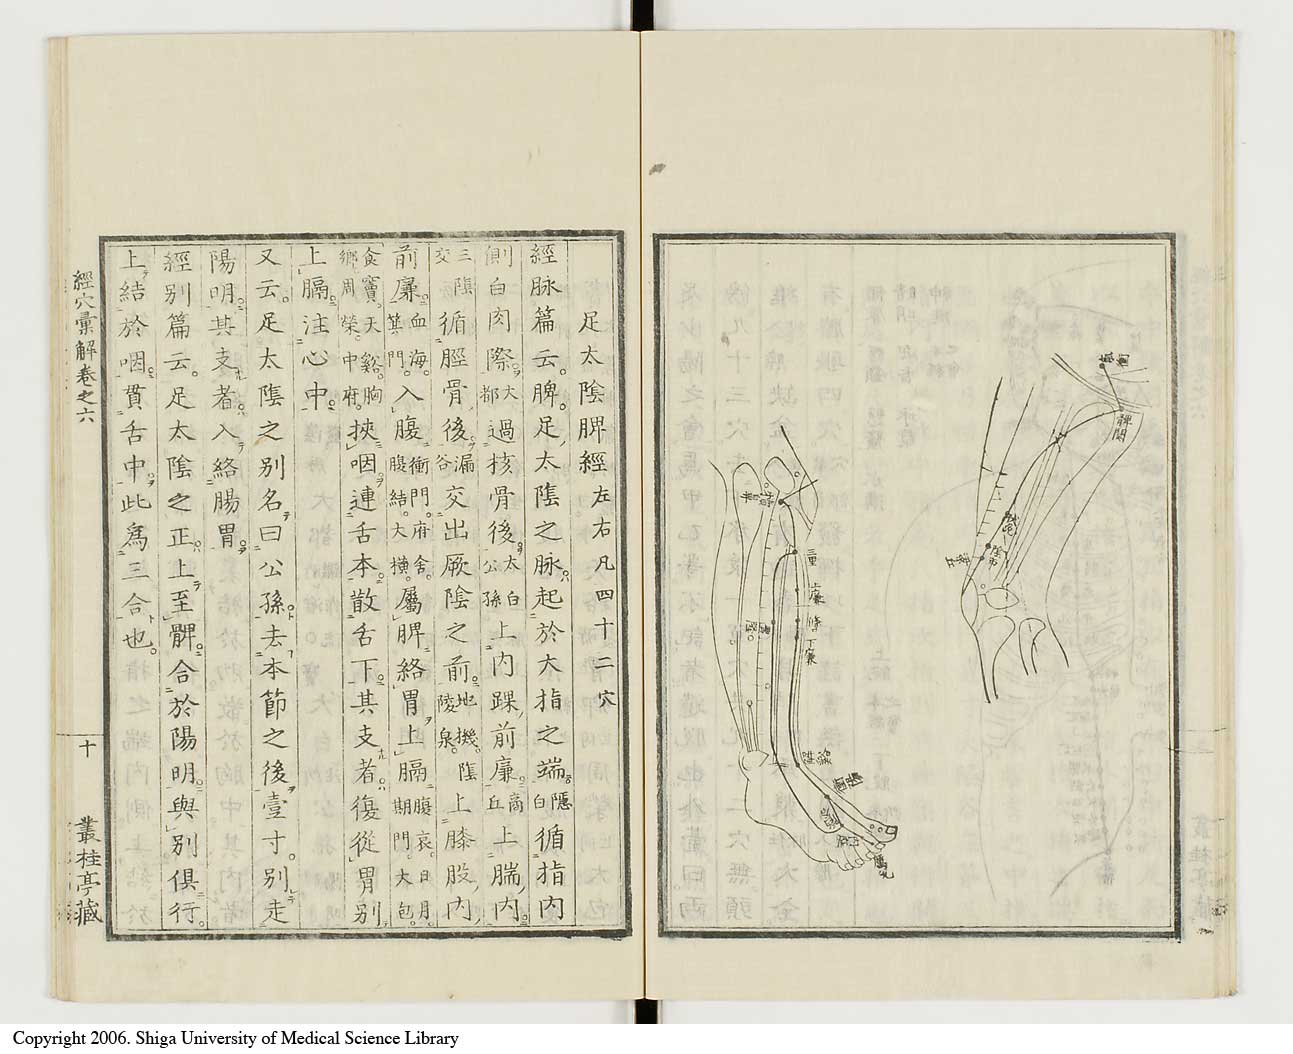 衝
髀関
伏兔
陰市
犢鼻
三里
廉
條
下廉
豊隆
解谿
衝陽
内庭
厲兌
足太陰脾經左右凡四十二穴
經脉篇云。脾足太陰之脉。起於大指之端。隱白循指内
側白肉際。大都過核骨後。太白公孫上内踝前廉。商丘上腨内。
三陰交循脛骨後。漏谷交出厥陰之前。地機。陰陵泉。上膝股内
前廉。血海。箕門。入腹衝門。府舍。腹結。大横。屬脾絡胃上膈腹哀。日月。期門。大包。
食竇。天谿。胸鄉。周榮。中府。挾咽連舌本。散舌下。其支者。復從胃別
上膈。注心中。
又云。足太陰之別名曰公孫。去本節之後壹寸。別走
陽明。其支者。入絡腸胃。
經別篇云。足太陰之正。上至髀。合於陽明。與別俱行。
上結於咽。貫舌中。此爲三合也。
經穴彙解卷之六
十
叢桂亭藏
Copyright 2006. Shiga University of Medical Science Library